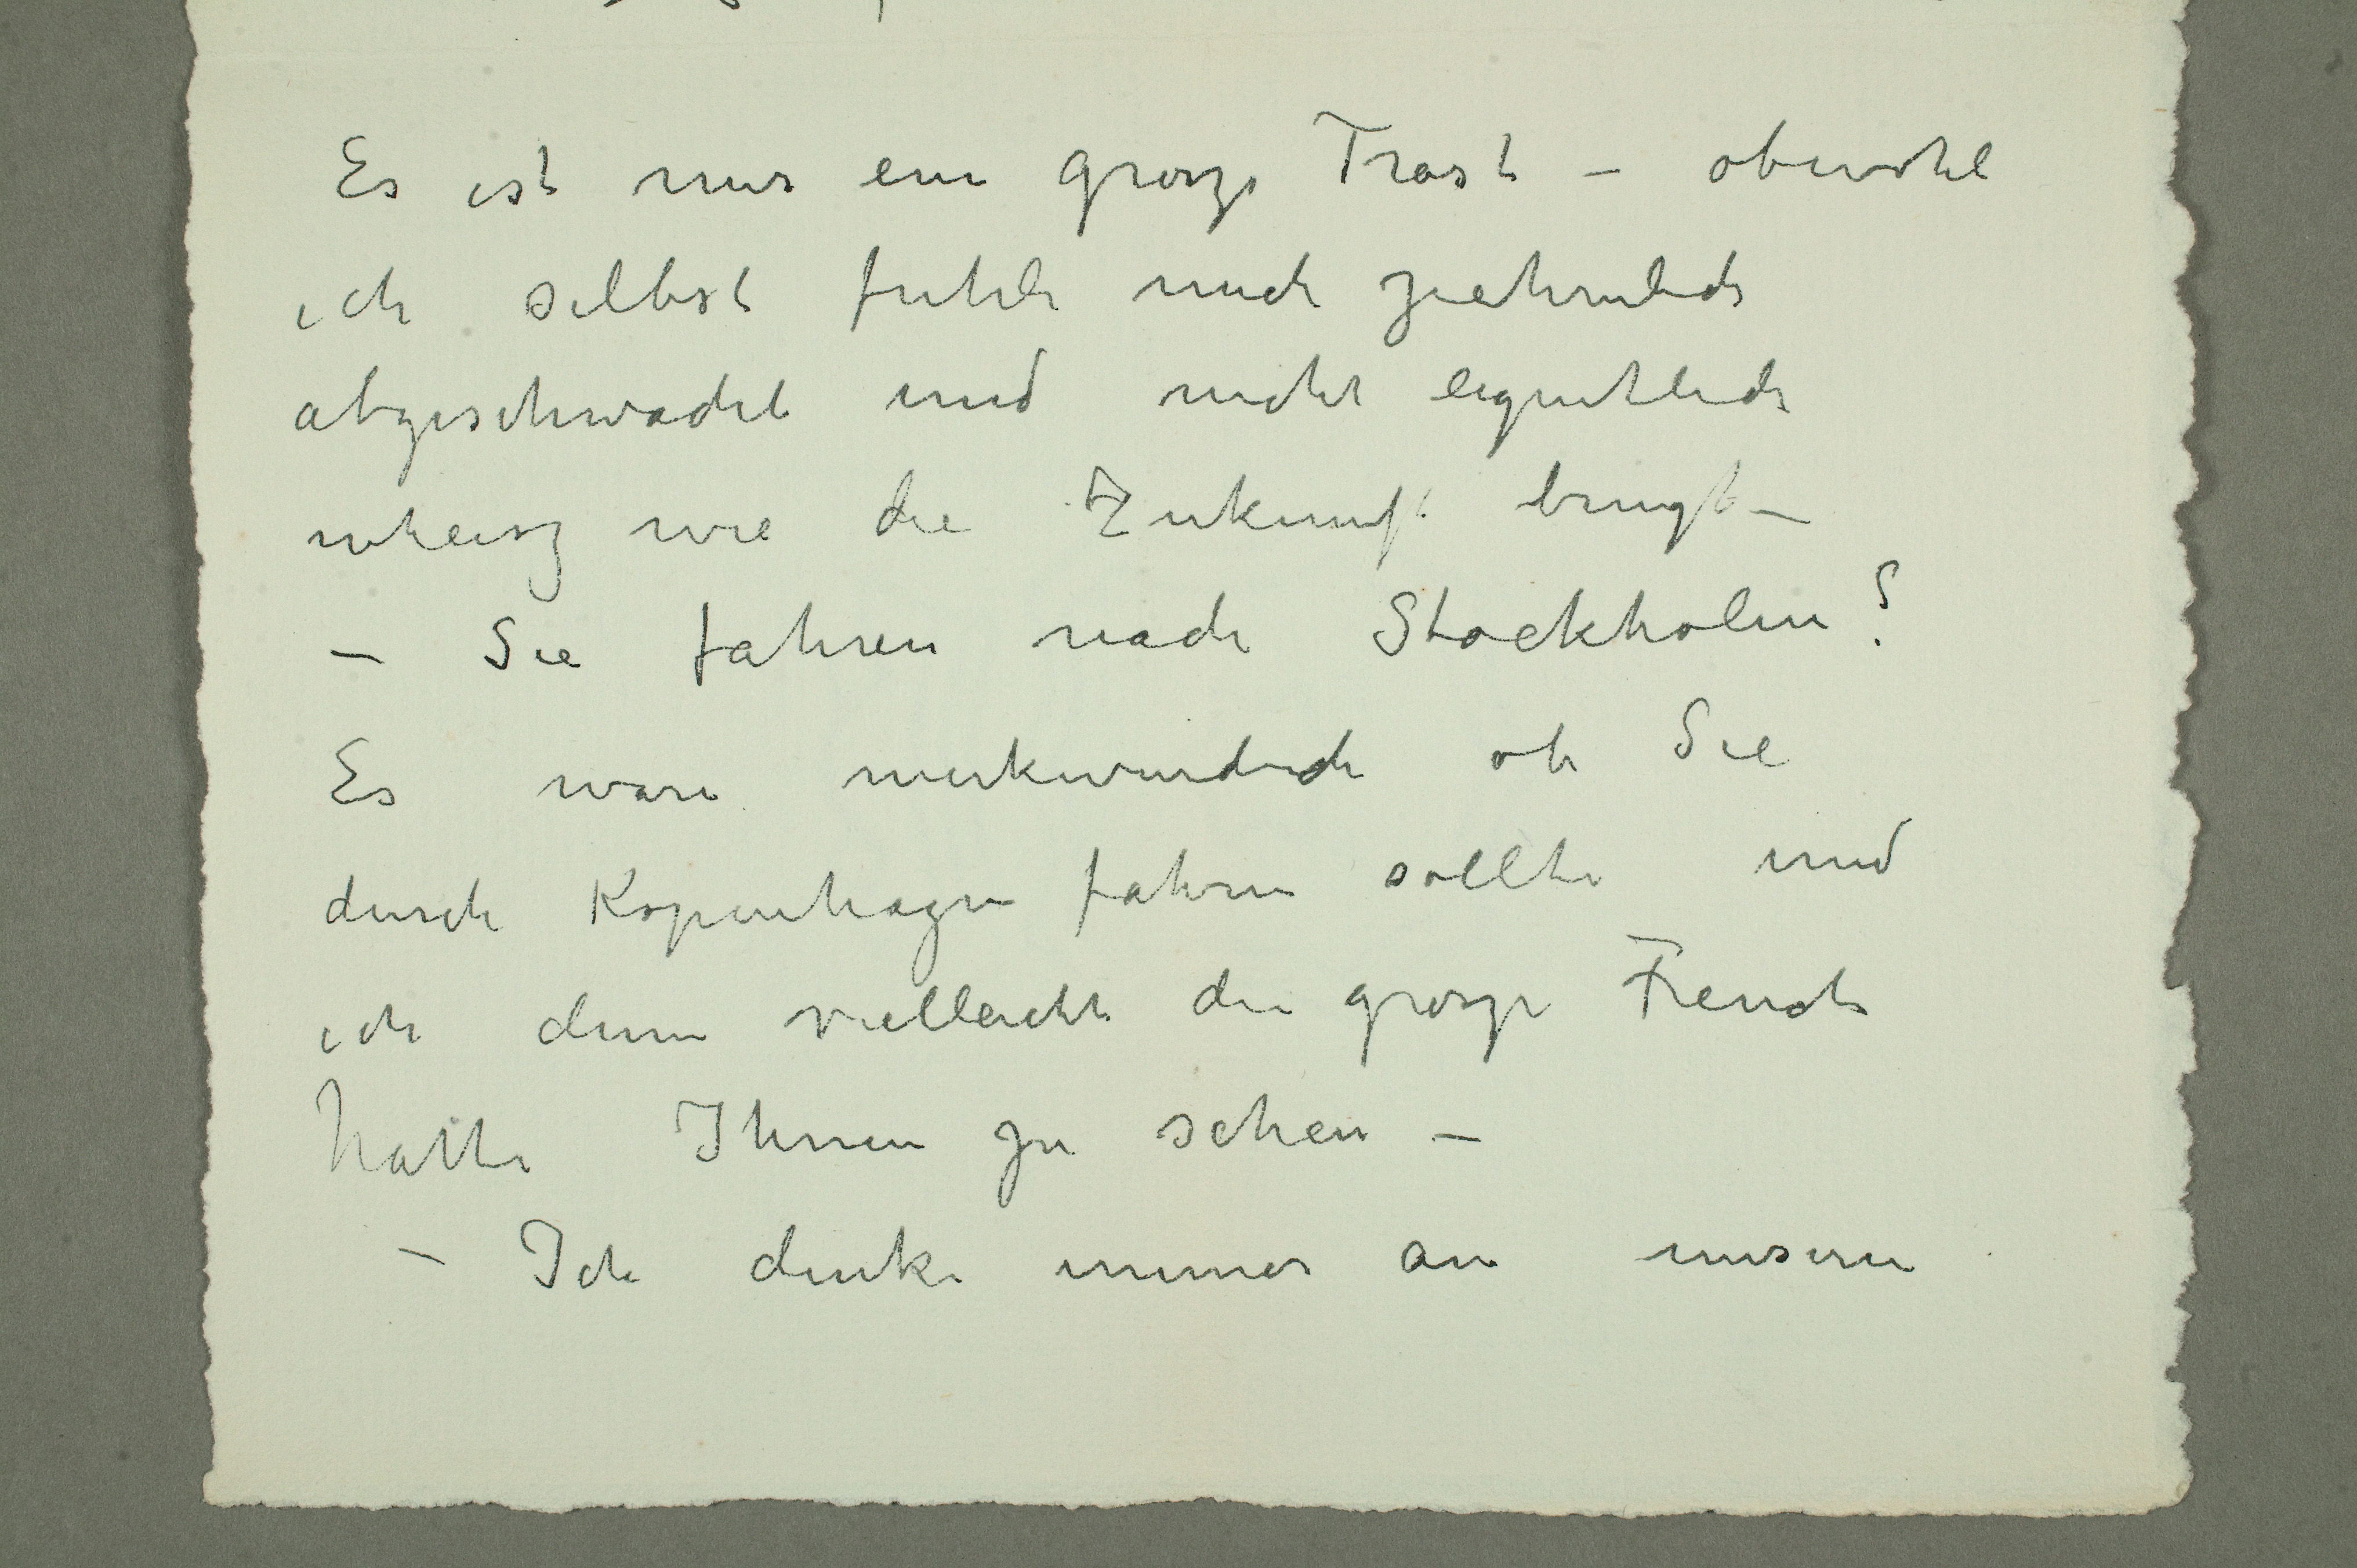 Es ist mir ein grosze Trost – obwohl
ich selbst fuhle mich ziehmlich
abgeschwacht und nicht eigentlich
wheisz wie die Zukunft bringt –
– Sie fahren nach Stockholm?
Es ware merkwurdich ob Sie
durch Kopenhagen fahren sollte und
ich denn vielleicht die grosze Freude
hatte Ihnen zu sehen –
– Ich denke immer an unsern